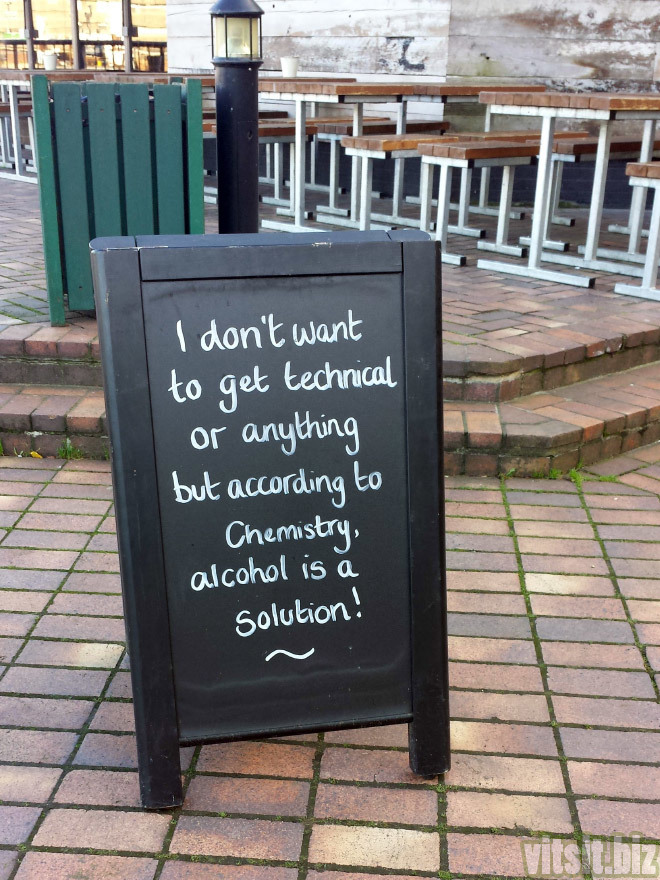 I don't want
to get technical
or anything
but according to
Chemistry,
alcohol is a
solution!
~
vitsit.biz